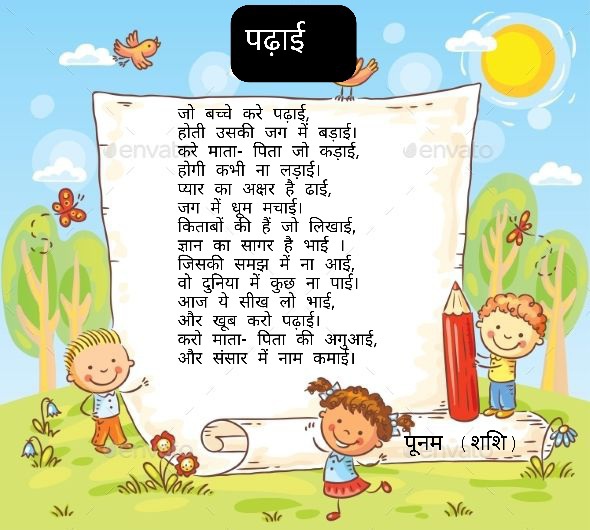 पढ़ाई
जो बच्चे करे पढ़ाई,
होती उसकी जग में बड़ाई।
करे माता- पिता जो कड़ाई,
होगी कभी ना लड़ाई।
प्यार का अक्षर है ढाई,
जग में धूम मचाई।
किताबों की हैं जो लिखाई,
ज्ञान का सागर है भाई ।
जिसकी समझ में ना आई,
वो दुनिया में कुछ ना पाई।
आज ये सीख लो भाई,
और खूब करो पढ़ाई।
करो माता- पिता की अगुआई,
और संसार में नाम कमाई।
पूनम ( शशि )
envato
envato
envato